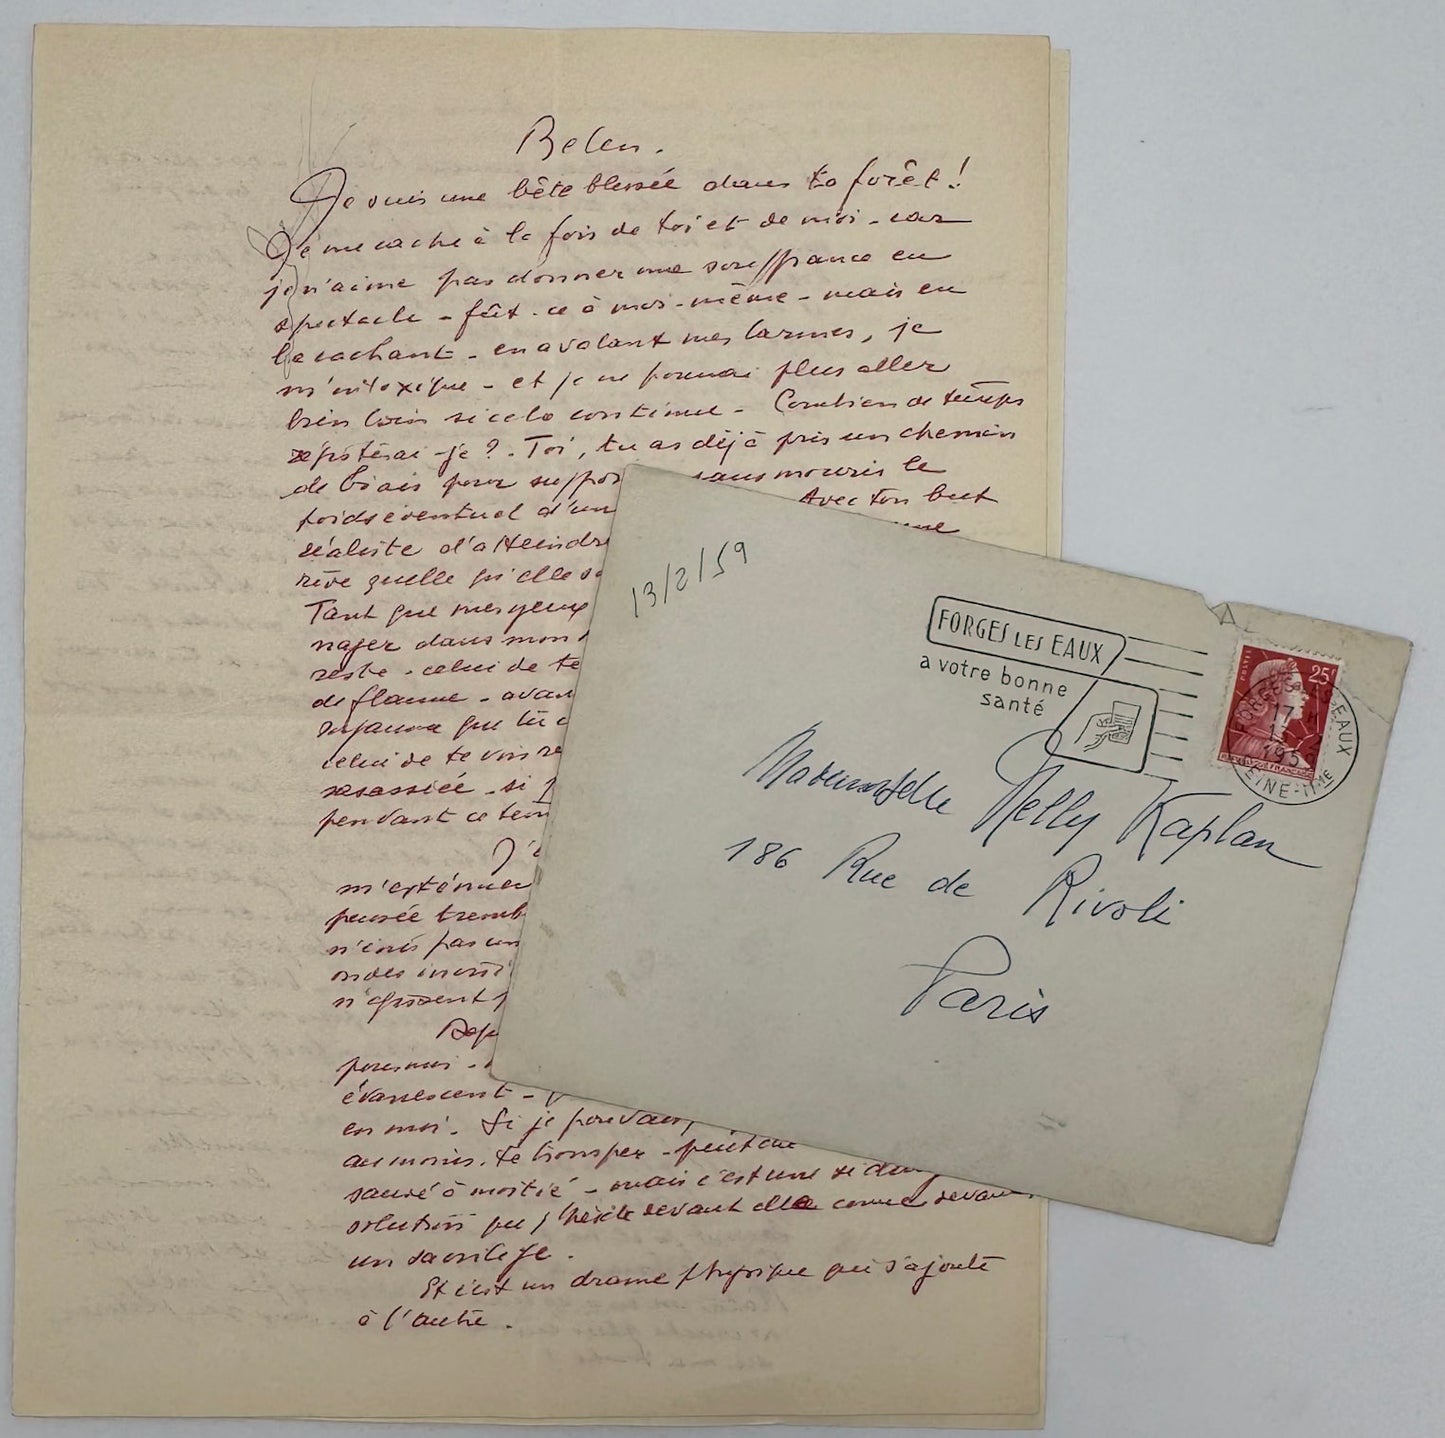 Belen.
Je suis une bête blessée dans ta forêt !
Je me cache à la fois de toi et de moi - car
je n'aime pas donner une souffrance en
spectacle - fût-ce à moi-même - mais en
la cachant - en avalant mes larmes, je
m'intoxique - et je ne pourrai plus aller
bien loin si cela continue - Combien de temps
résisterai-je ? - Toi, tu as déjà pris un chemin
de biais pour suppor sans mourir le
poids éventuel d'un Avec ton but
réaliste d'atteindre une
rêve quelle qu'elle s
Tant que mes yeux
nager dans mon
reste - celui de te
de flamme - avan
que tu
celui de te voir re
rassasiée - si
pendant ce tem
J'
m'exténuer
pensée tremb
n'est pas un
ondes
n'agissent
Dep
pour moi -
évanescent -
en moi. Si je pouvais,
au moins, te tromper - peut
sauvé à moitié - mais c'est une si
solution que j'hésite devant elle comme devant
un sacrilège.
Et c'est un drame physique qui s'ajoute
à l'autre.
13/2/59
FORGES LES EAUX
a votre bonne
santé
25F
POSTES
REPUBLIQUE FRANÇAISE
FORGES-LES-EAUX
17 H
13-2
1959
SEINE-ITME
Mademoiselle Nelly Kaplan
186 Rue de Rivoli
Paris